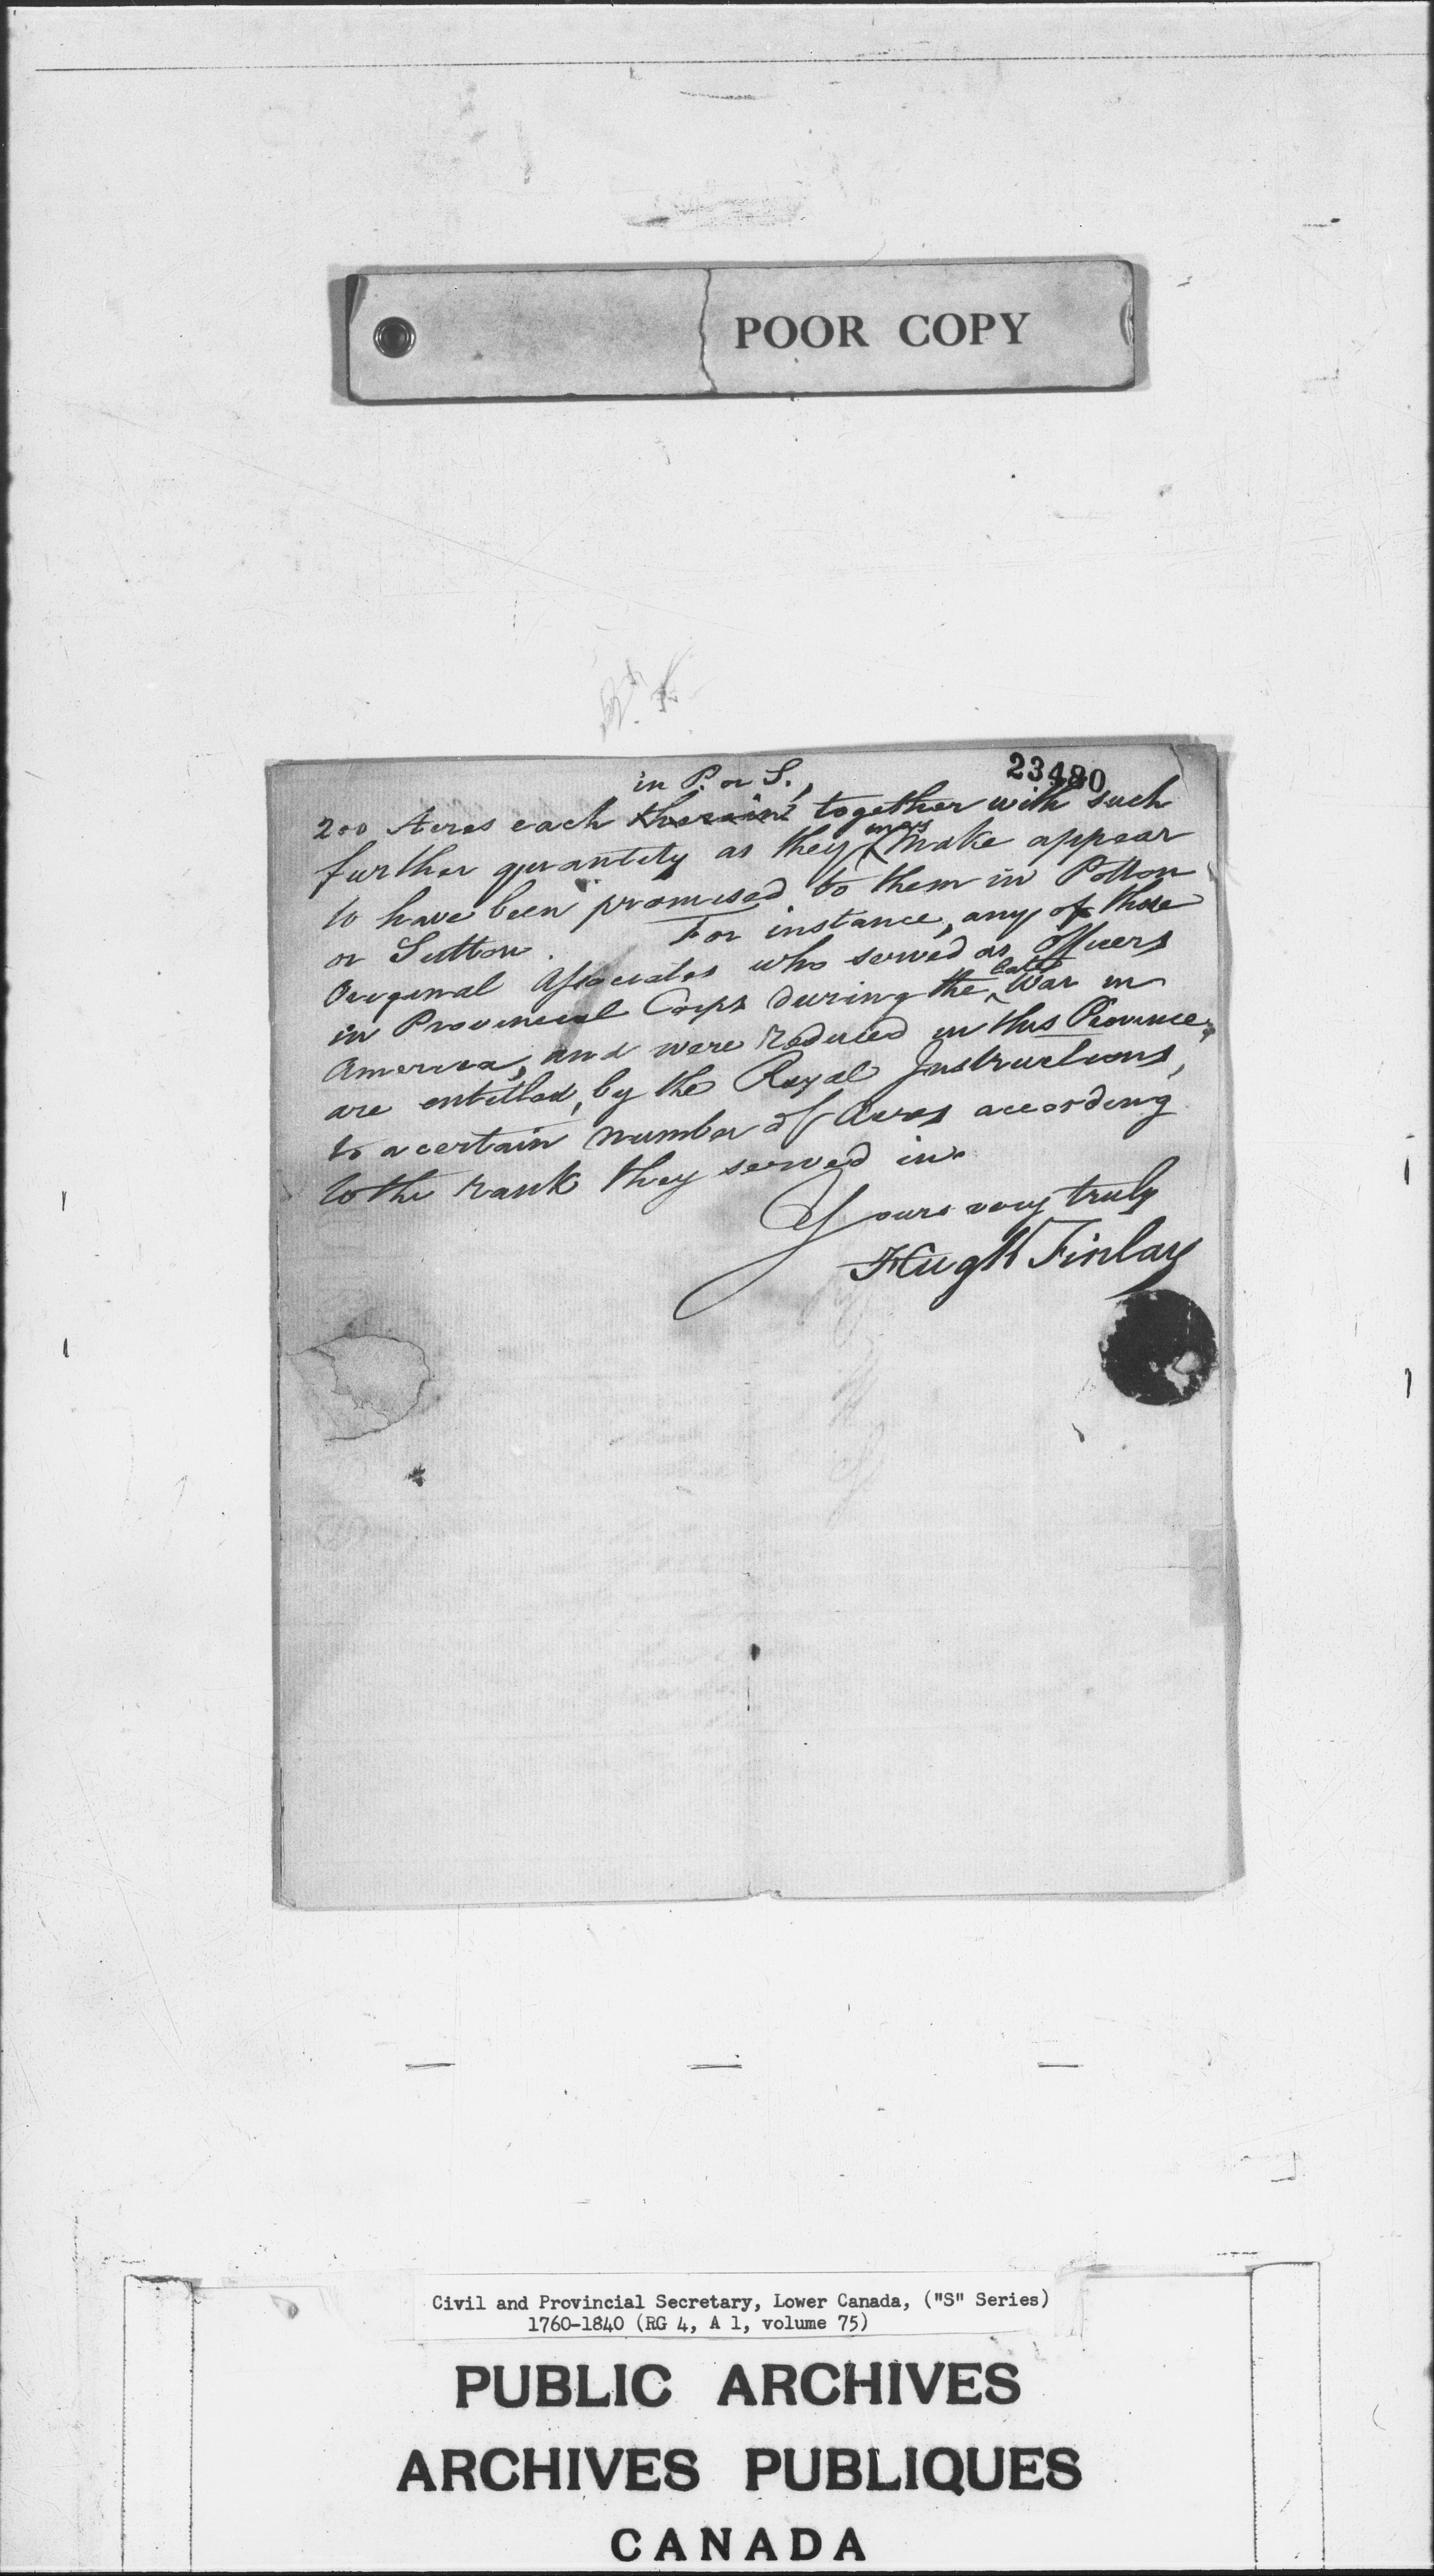 POOR COPY
23480
in P. or S.,
200 Acres each therein, together with such
further quantity as they may make appear
to have been promised to them in Potton
or Sutton. For instance, any of those
Original Associates who served as Officers
in Provincial Corps during the late War in
America, and were reduced in this Province,
are entitled, by the Royal Instructions,
to a certain number of Acres according
to the rank they served in.
Yours very truly
Hugh Finlay
Civil and Provincial Secretary, Lower Canada, ("S" Series)
1760-1840 (RG 4, A 1, volume 75)
PUBLIC ARCHIVES
ARCHIVES PUBLIQUES
CANADA